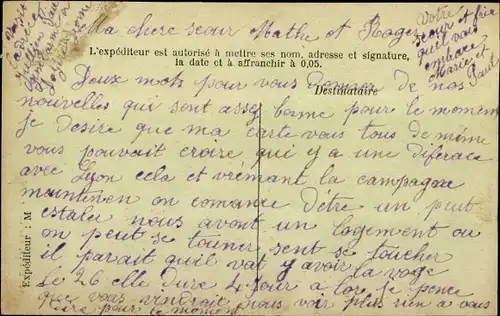 Ma chere seour Mathe et Roger
L'expéditeur est autorisé à mettre ses nom, adresse et signature,
la date et à affranchir à 0,05.
Destinataire
Deux mots pour vous de nos
nouvelles qui sont asse bonne pour le moment
je desire que ma carte vous tous de même
vous pouvait croire qui y a une diferace
avec Lyon cela et vrémant la campagne
maintenen on comance d'etre un peut
estaler nous avont un logement ou
on peut se tourner sent se toucher
il parait quil vat y avoir la voge
le 26 elle dure 4 jour a lor je pence
que vous viendrait nous voir plus rien a vous
dire pour le moment
Votre
seour et frère
quil vous
embrace
Marie et
Paul
Expéditeur : M